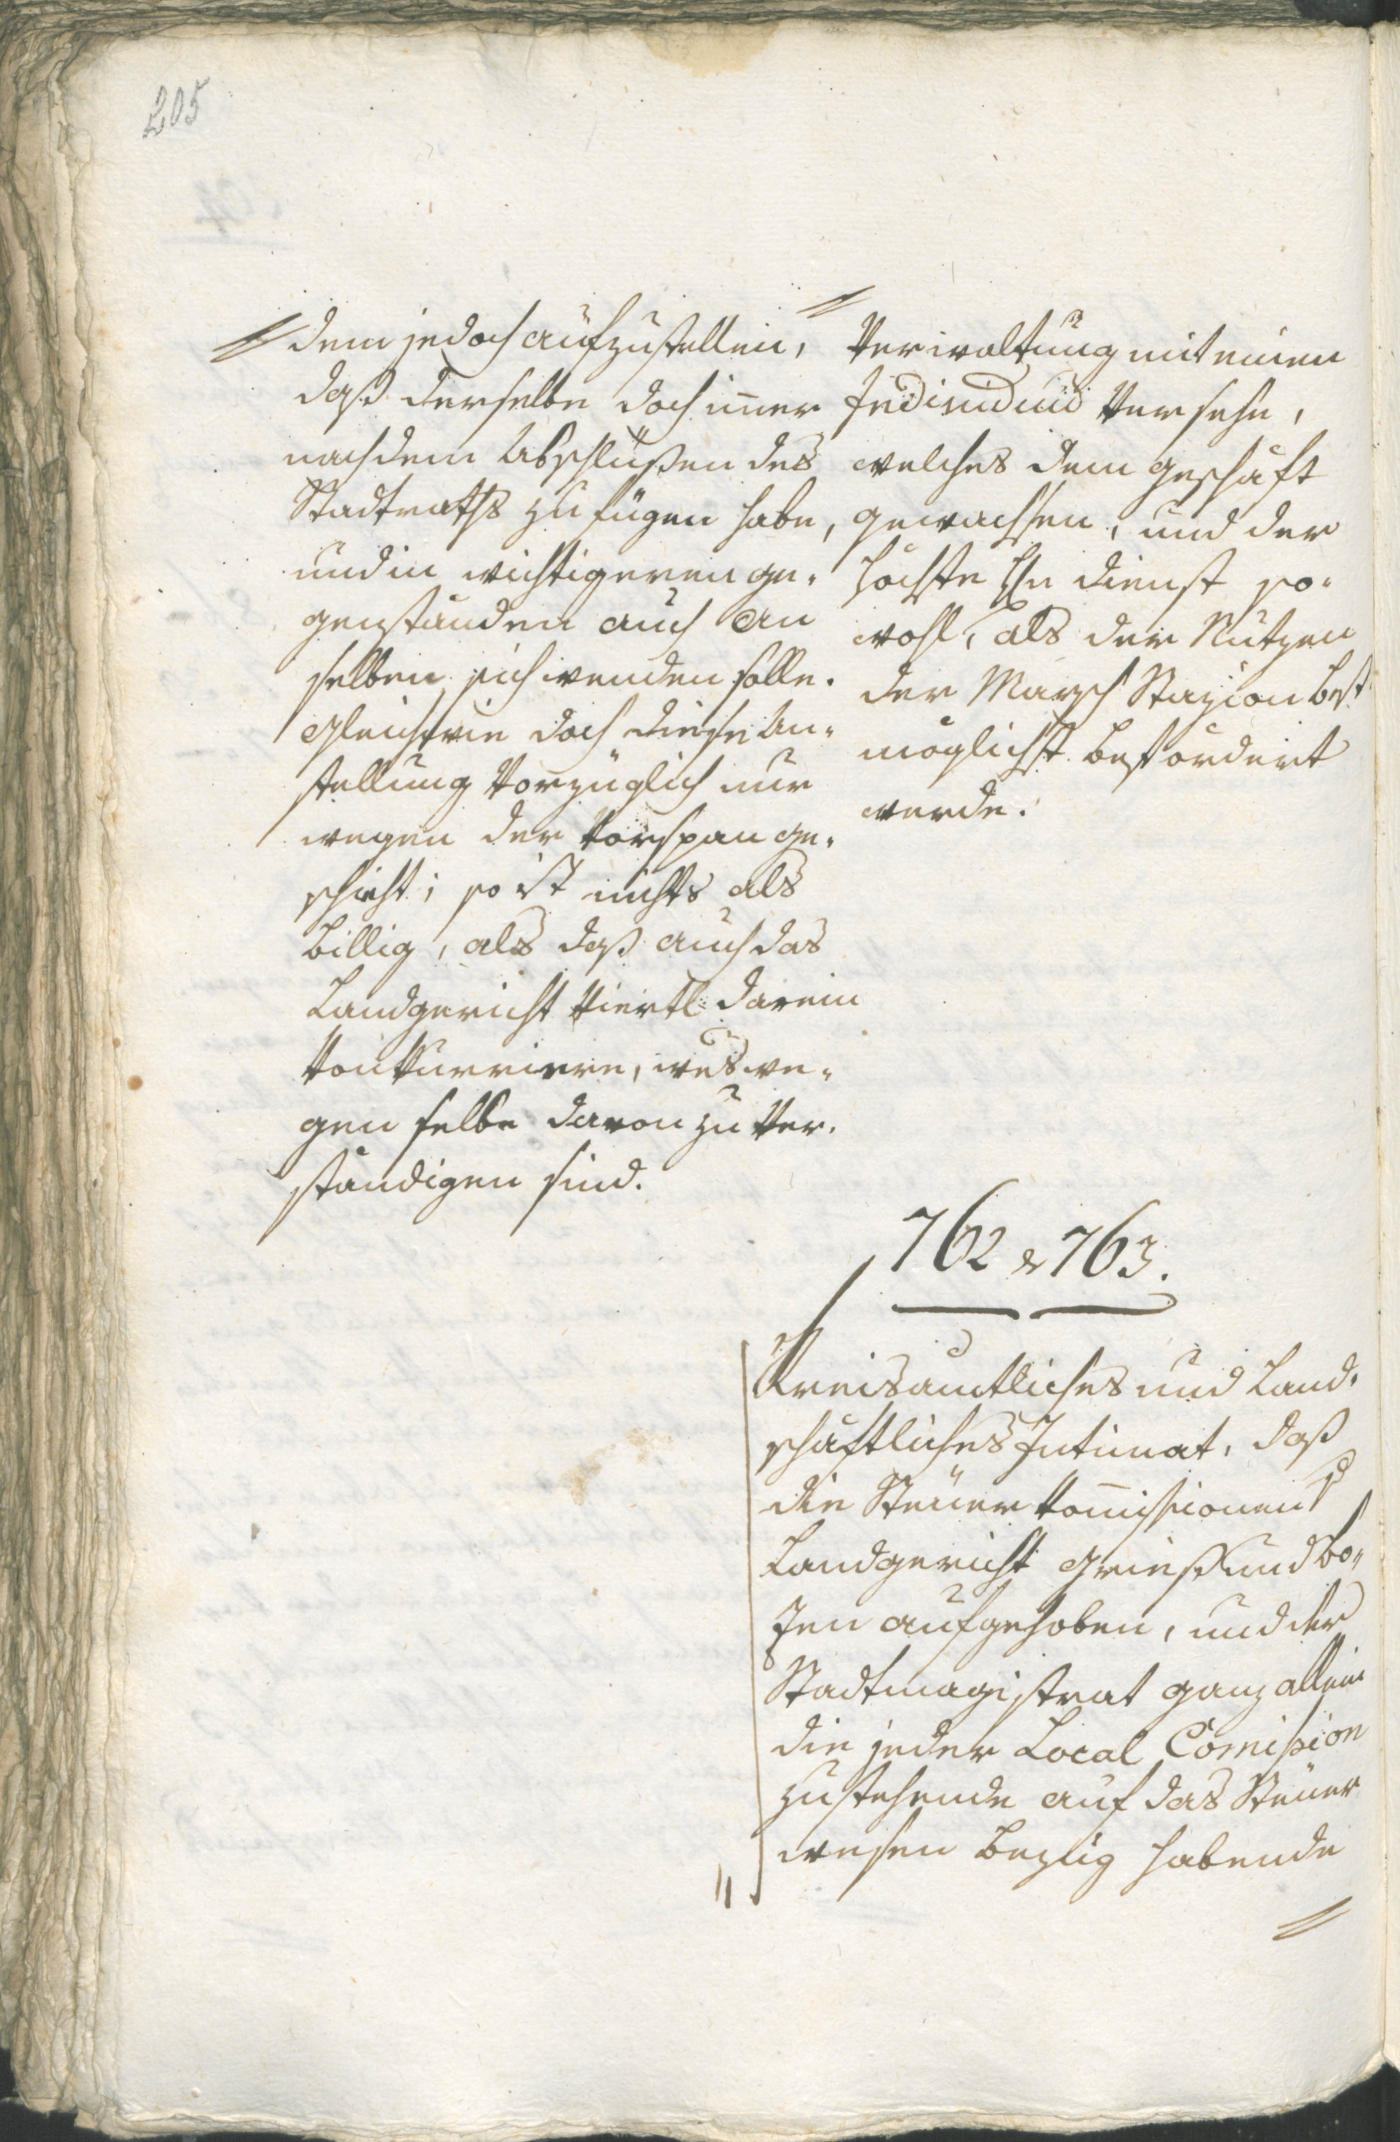 205
dem jedoch aufzustellen,
daß derselbe doch im̅er
nach dem Abschlüßen des
Stadtraths zu fügen habe,
und in wichtigeren ge-
genständen auch an
selben sich wenden solle.
Gleichwie doch diese An-
stellung vorzüglich nur
wegen der Vorspan ge-
schieht; so ist nichts als
billig, als daß auch das
Landgericht Viertl darein
konkurriere, wesswe-
gen selbe davon zu ver-
ständigen sind.
Verwaltung mit einem
Individuo versehe,
welches dem geschäft
gewachsen, und der
höchste dienst so-
wohl, als der Nutzen
der Marsch Stazion best
möglichst befördert
werde.
762 & 763.
Kreisamtliches und Land-
schäftliches Intimat, daß
die Steüer Kom̅issionen
Landgericht Grieß und Bo-
zen aufgehoben, und der
Stadtmagistrat ganz allein
die jeder Local Com̅ission
zustehende auf das Steüer
wesen bezug habende